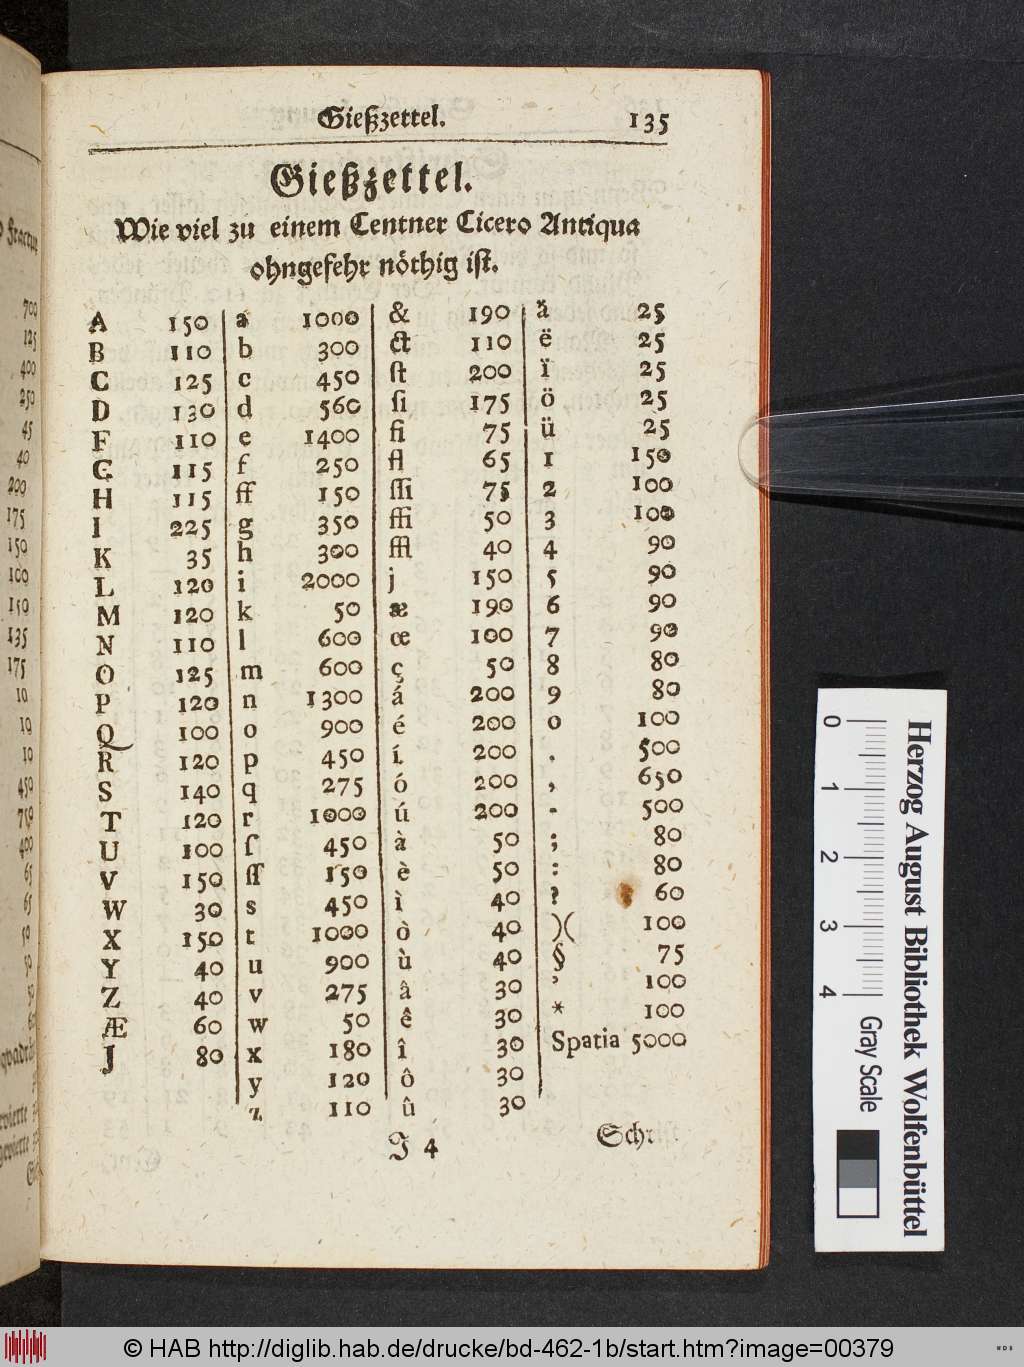 Gießzettel. 135
Gießzettel.
Wie viel zu einem Centner Cicero Antiqua
ohngefehr nöthig ist.
A 150 a 1000 & 190 ä 25
B 110 b 300 ct 110 ë 25
C 125 c 450 ſt 200 ï 25
D 130 d 560 ſi 175 ö 25
F 110 e 1400 fi 75 ü 25
G 115 f 250 fl 65 1 150
H 115 ff 150 ſſi 75 2 100
I 225 g 350 ffi 50 3 100
K 35 h 300 ffl 40 4 90
L 120 i 2000 j 150 5 90
M 120 k 50 æ 190 6 90
N 110 l 600 œ 100 7 90
O 125 m 600 ç 50 8 80
P 120 n 1300 á 200 9 80
Q 100 o 900 é 200 0 100
R 120 p 450 í 200 . 500
S 140 q 275 ó 200 , 650
T 120 r 1000 ú 200 - 500
U 100 ſ 450 à 50 ; 80
V 150 ſſ 150 è 50 : 80
W 30 s 450 ì 40 ? 60
X 150 t 1000 ò 40 )( 100
Y 40 u 900 ù 40 § 75
Z 40 v 275 â 30 ’ 100
Æ 60 w 50 ê 30 * 100
J 80 x 180 î 30 Spatia 5000
y 120 ô 30
z 110 û 30
J 4 Schrift
Fractur
700
125
400
250
45
40
200
175
150
100
150
135
175
10
10
10
450
700
400
65
65
Herzog August Bibliothek Wolfenbüttel
0 1 2 3 4 Gray Scale
© HAB http://diglib.hab.de/drucke/bd-462-1b/start.htm?image=00379